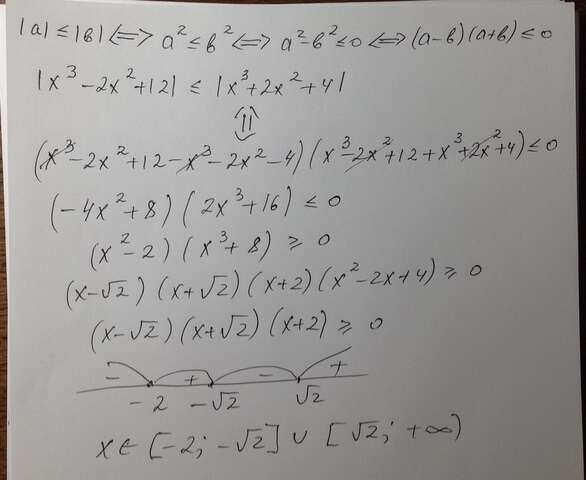 |a| ≤ |b| ⟺ a² ≤ b² ⟺ a² - b² ≤ 0 ⟺ (a - b)(a + b) ≤ 0
|x³ - 2x² + 12| ≤ |x³ + 2x² + 4|
⇕
(x³ - 2x² + 12 - x³ - 2x² - 4)(x³ - 2x² + 12 + x³ + 2x² + 4) ≤ 0
(-4x² + 8)(2x³ + 16) ≤ 0
(x² - 2)(x³ + 8) ≥ 0
(x - √2)(x + √2)(x + 2)(x² - 2x + 4) ≥ 0
(x - √2)(x + √2)(x + 2) ≥ 0
- + - +
-2 -√2 √2
x ∈ [-2; -√2] ∪ [√2; +∞)